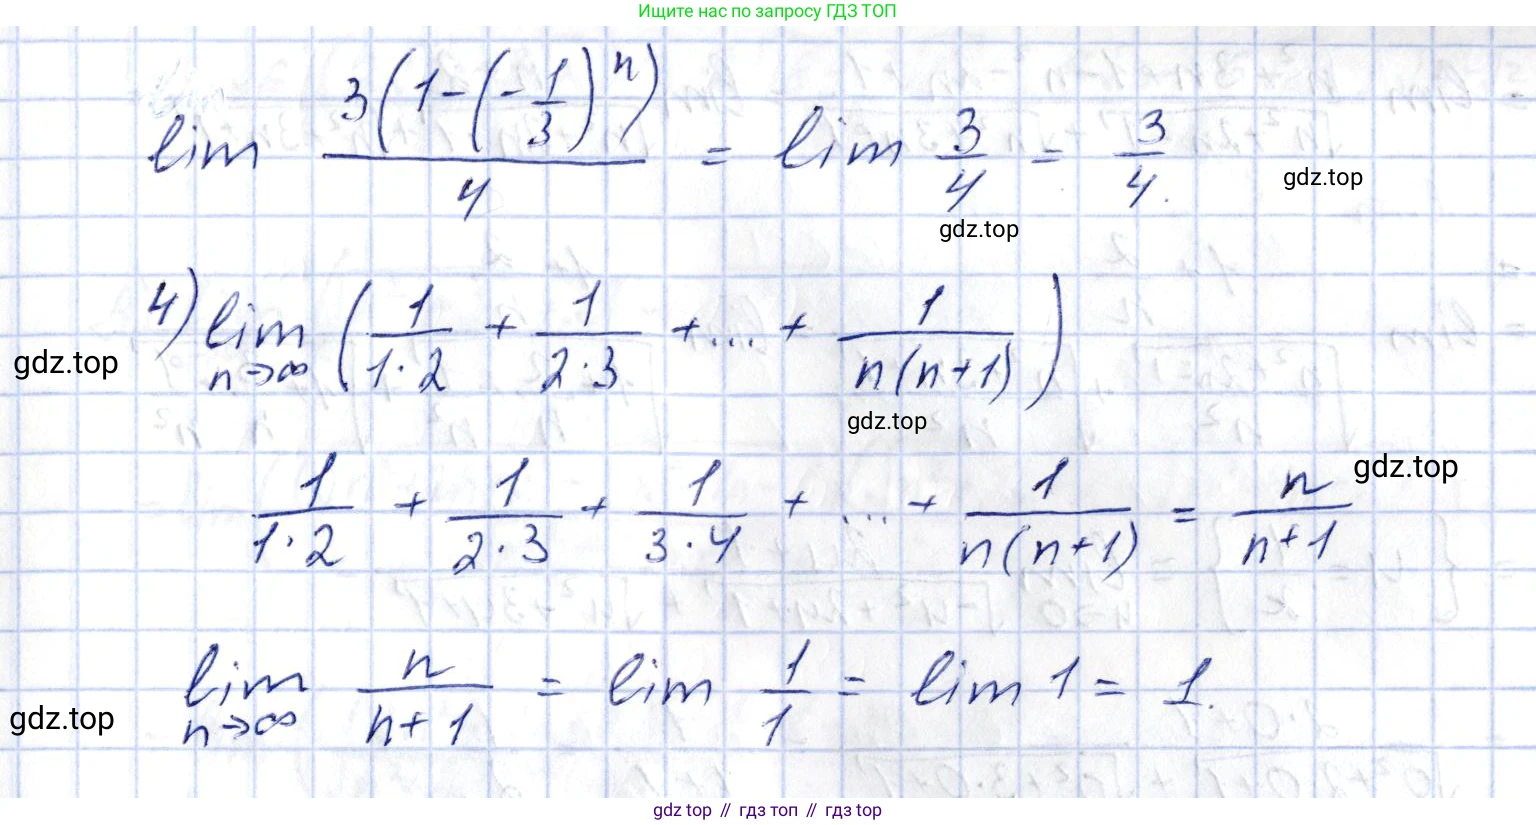 Ищите нас по запросу ГДЗ ТОП
lim 3(1-(-1/3)^n) / 4 = lim 3/4 = 3/4.
gdz.top
gdz.top
4) lim n→∞ (1/(1·2) + 1/(2·3) + ... + 1/(n(n+1)))
gdz.top
gdz.top
1/(1·2) + 1/(2·3) + 1/(3·4) + ... + 1/(n(n+1)) = n/(n+1)
gdz.top
lim n→∞ n/(n+1) = lim 1/1 = lim 1 = 1.
gdz.top
gdz top // гдз топ // гдз top